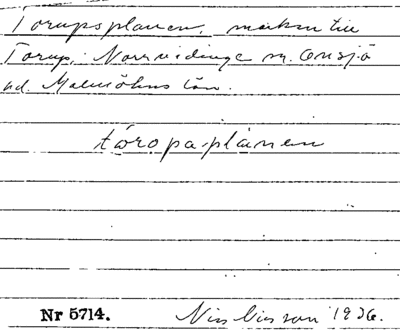 Torupsplanen, marken till
Torup, Norrvidinge sn. Onsjö
hd. Malmöhus län.
tåropa-plånen
Nr 5714. Nils Nilsson 1936.